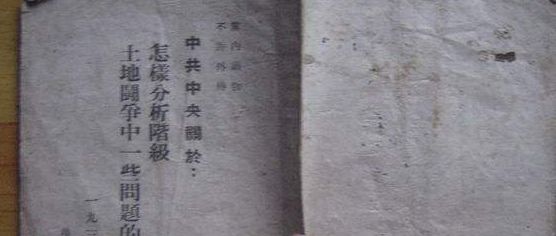 黨內
不 外
中共中央關於：
怎樣分析階級
土地鬪爭中一些問題的
一九